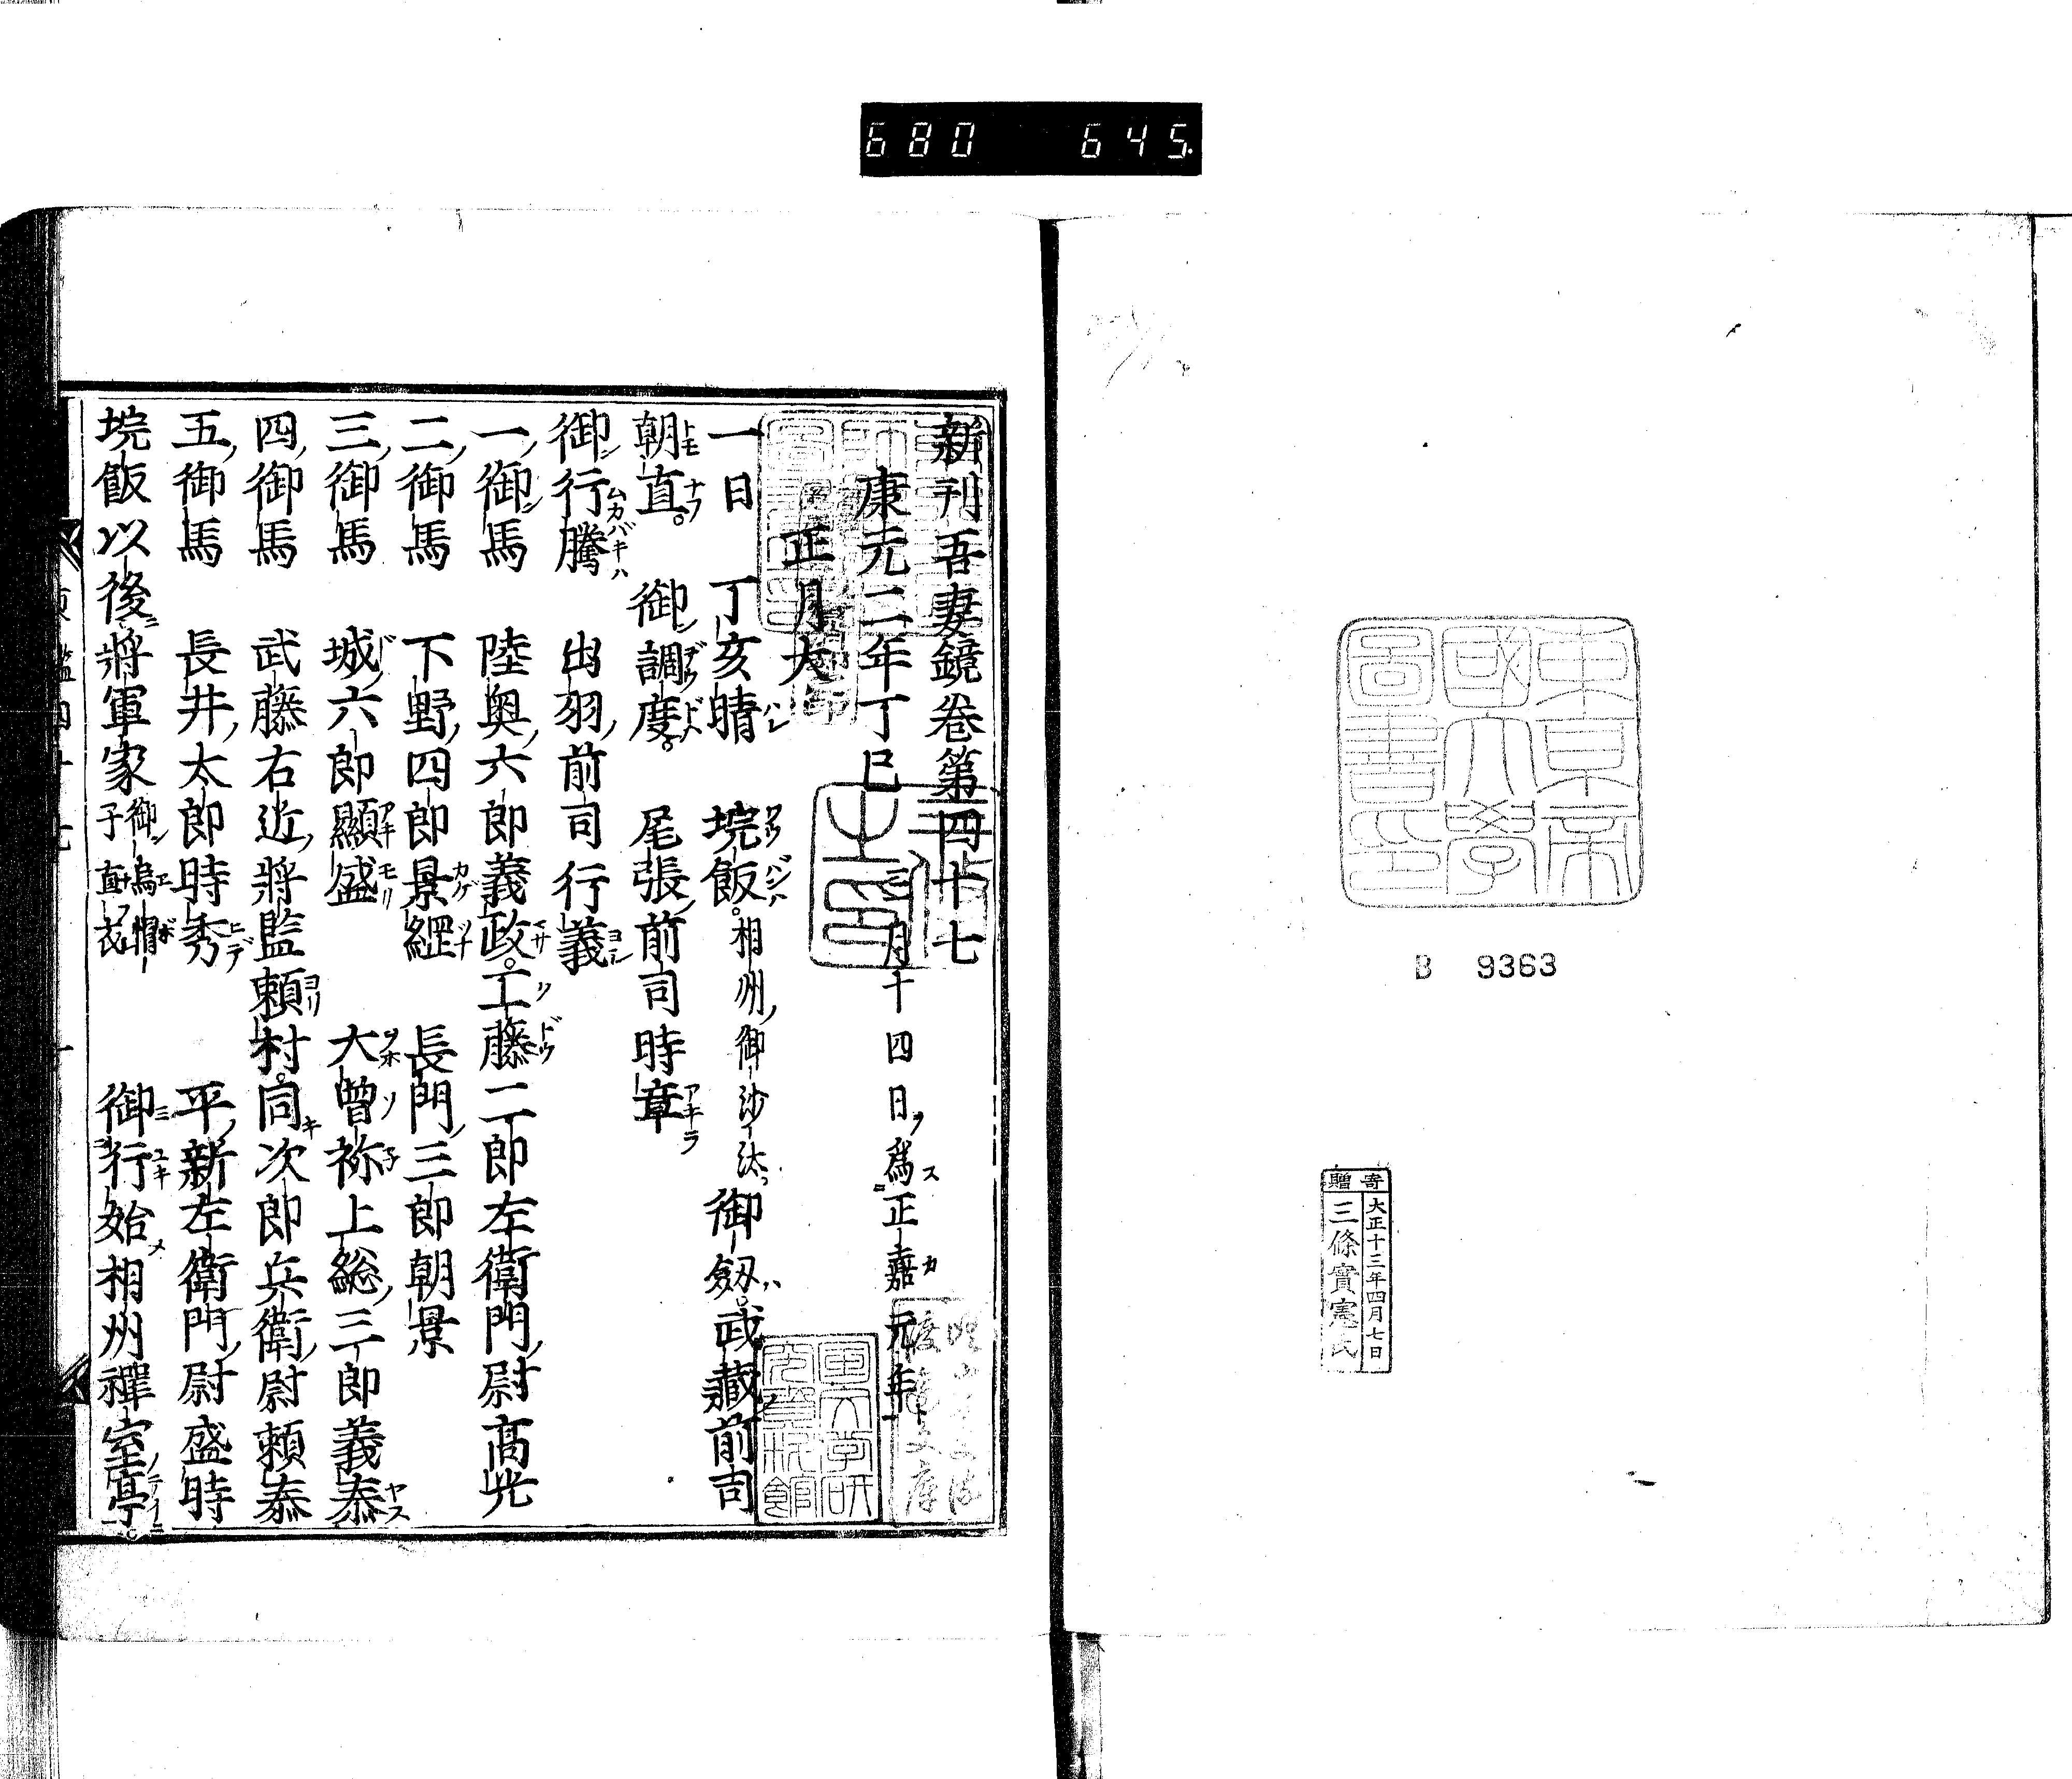 680 645
東京帝
國大學
圖書印
B 9363
寄贈
大正十三年四月七日
三條實憲氏
新刊吾妻鏡卷第四十七
康元二年丁巳 三月十四日爲正嘉元年
正月大
一日 丁亥晴 垸飯。相州御沙汰 御劔。武藏前司
朝直。 御調度。 尾張前司時章
御行騰 出羽前司行義
一御馬 陸奥六郎義政。工藤二郎左衛門尉高光
二御馬 下野四郎景綱 長門三郎朝景
三御馬 城六郎顯盛 大曾祢上総三郎義泰
四御馬 武藤右近將監頼村。同次郎兵衛尉頼泰
五御馬 長井太郎時秀 平新左衛門尉盛時
垸飯以後將軍家御烏帽子直衣 御行始相州禪室亭。